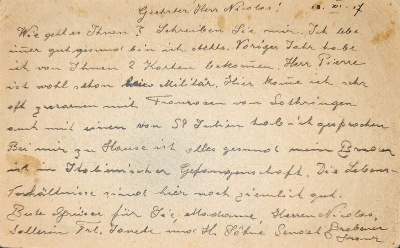 Geehrter Herr Nicolas! 18. XI. 17
Wie geht es Ihnen? Schreiben Sie mir. Ich lebe
imer gut, gesund bin ich stets. Voriges Jahr habe
ich von Ihnen 2 Karten bekomen. Herr Pierre
ist wohl schon Militär. Hier kome ich sehr
oft zusamen mit Franzosen von Lothringen
auch mit einem von St Julien hab ich gesprochen
Bei mir zu Hause ist alles gesund mein Bruder
ist in Italienischer Gefangenschaft. Die Lebens-
verhältnisse sind hier noch ziemlich gut.
Beste Grüsse für Sie, Madame, Herrn Nicolas,
Frl. und H. Söhne Sendet
Franz